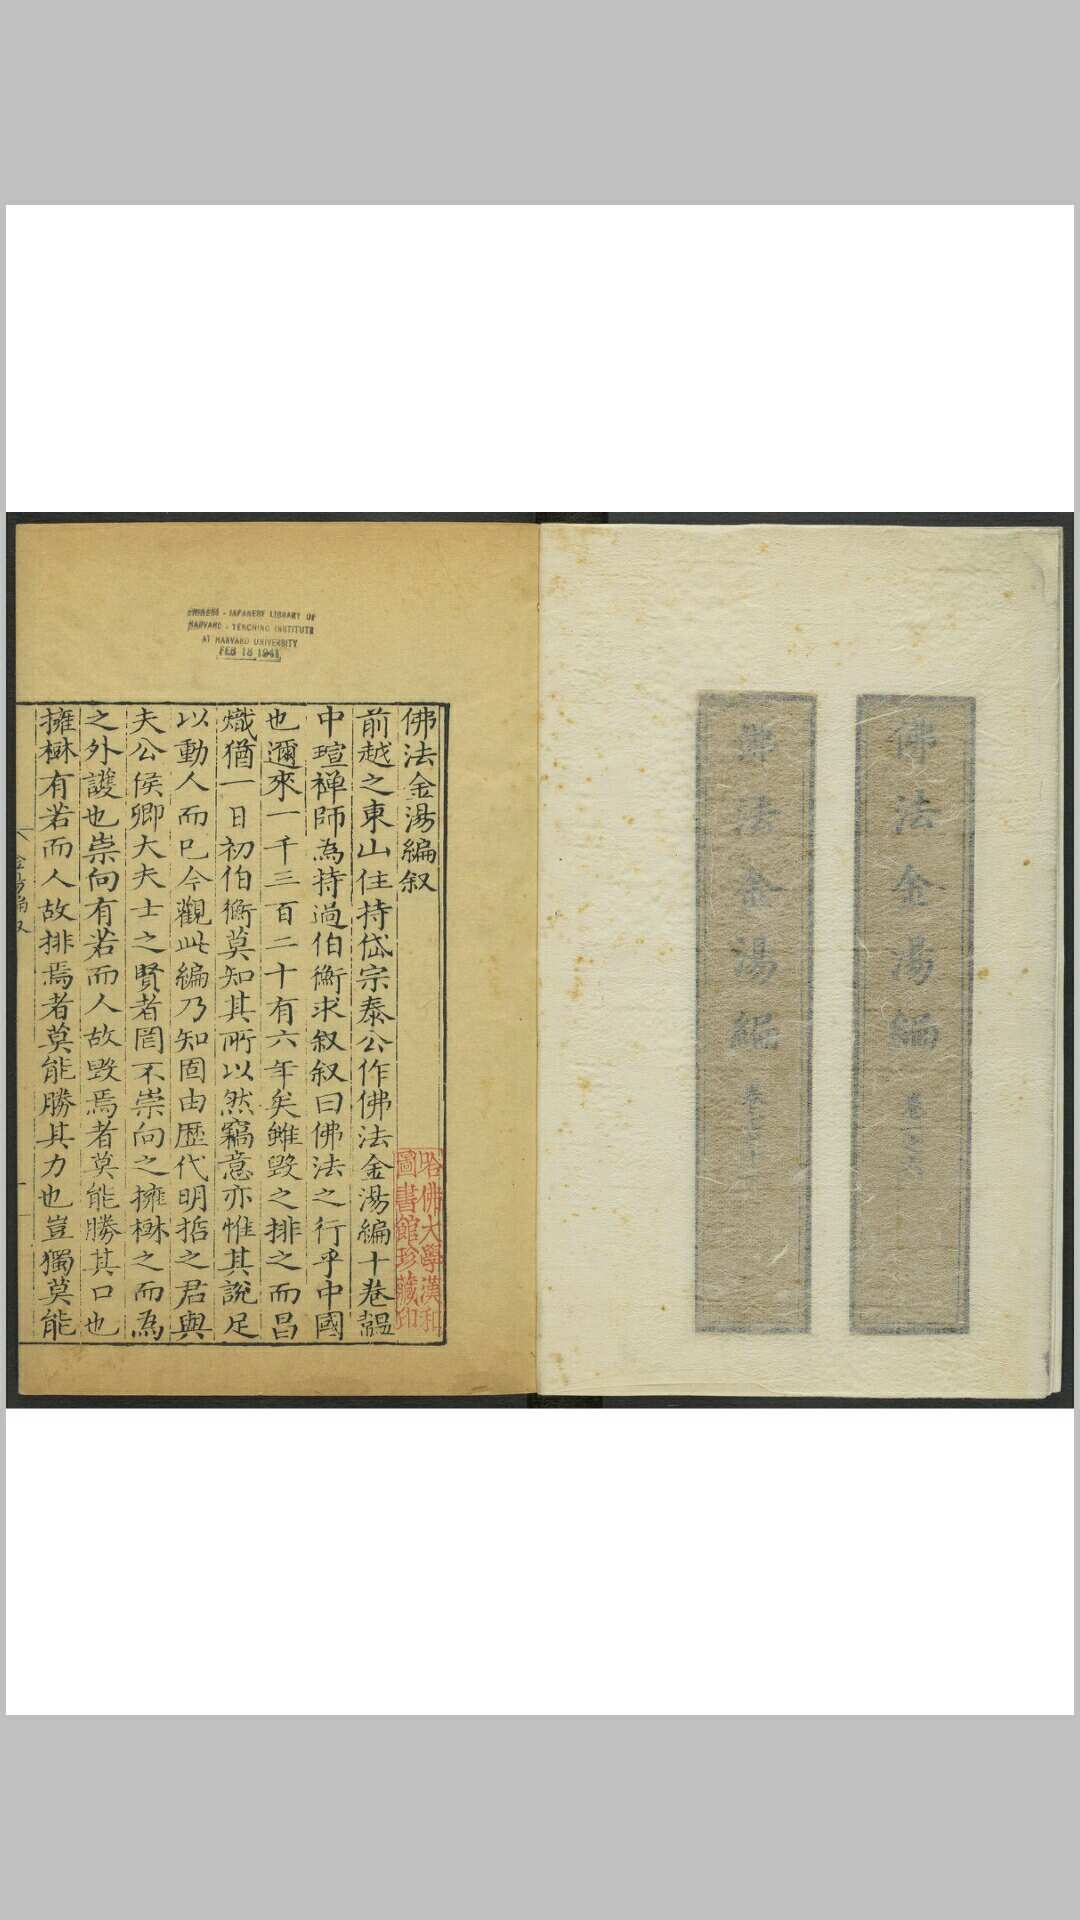 佛法金湯編
卷一之六
佛法金湯編
CHINESE - JAPANESE LIBRARY OF
HARVARD - YENCHING INSTITUTE
AT HARVARD UNIVERSITY
FEB 18 1941
佛法金湯編叙
前越之東山住持岱宗泰公作佛法金湯編十卷囍
中瑄禅師為持過伯衡求叙叙曰佛法之行乎中國
也邇來一千三百二十有六年矣雖毀之排之而昌
熾猶一日初伯衡莫知其所以然竊意亦惟其說足
以動人而已今觀此編乃知固由歷代明哲之君與
夫公侯卿大夫士之賢者罔不崇向之擁楙之而為
之外護也崇向有若而人故毀焉者莫能勝其口也
擁楙有若而人故排焉者莫能勝其力也豈獨莫能
哈佛大學漢和
圖書館珍藏印